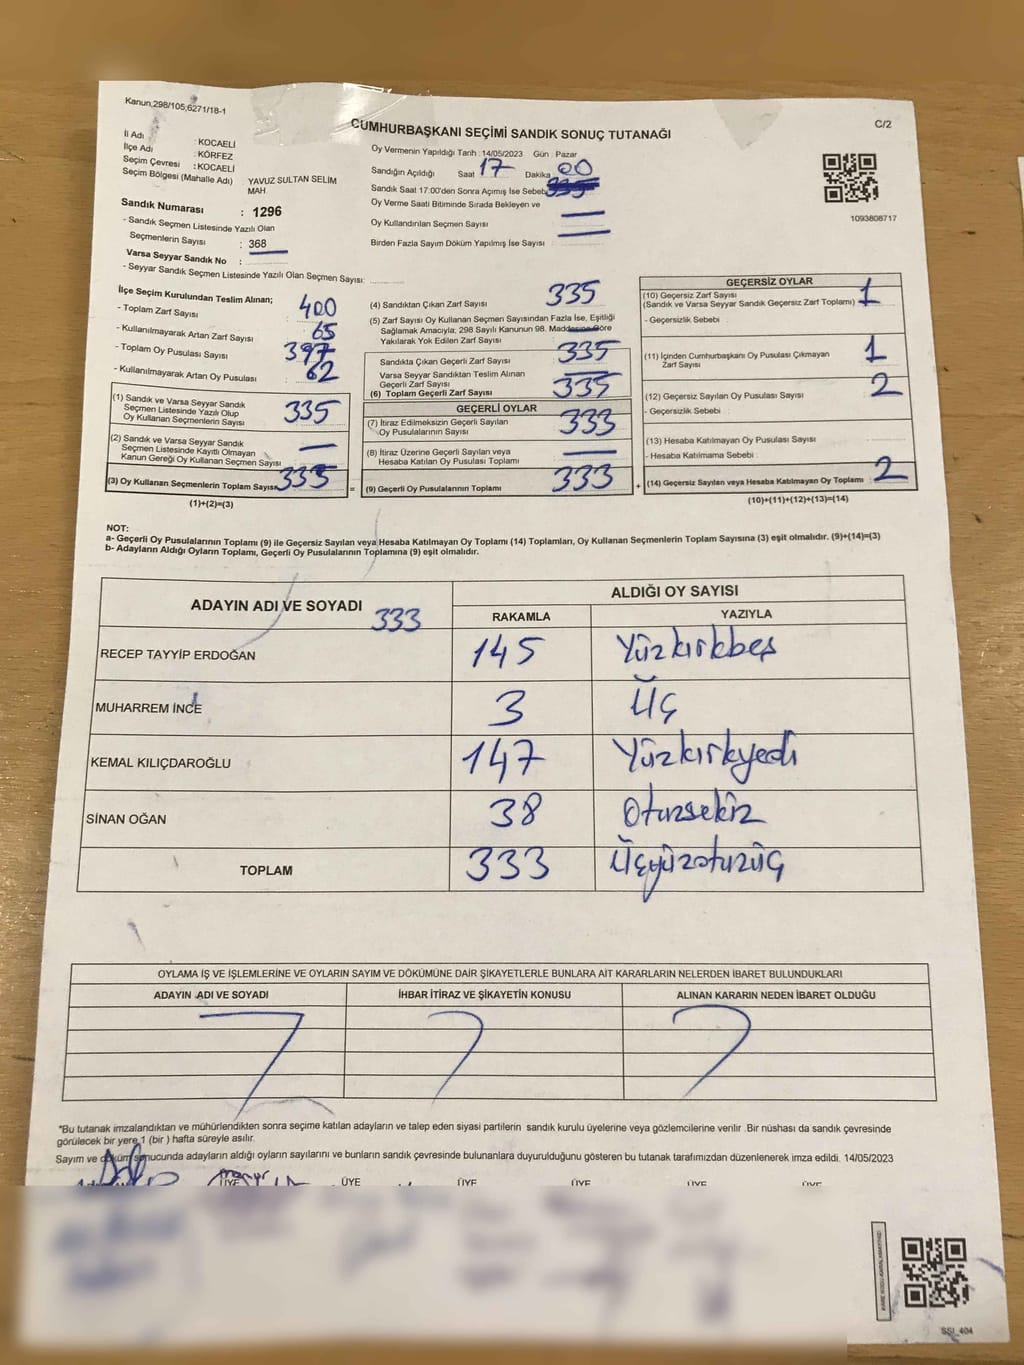 Kanun,298/105,6271/18-1
C/2
CUMHURBAŞKANI SEÇİMİ SANDIK SONUÇ TUTANAĞI
İl Adı : KOCAELİ
İlçe Adı : KÖRFEZ
Seçim Çevresi : KOCAELİ
Seçim Bölgesi (Mahalle Adı) : YAVUZ SULTAN SELİM
MAH.
Sandık Numarası : 1296
- Sandık Seçmen Listesinde Yazılı Olan
Seçmenlerin Sayısı : 368
Varsa Seyyar Sandık No :
- Seyyar Sandık Seçmen Listesinde Yazılı Olan Seçmen Sayısı:
Oy Vermenin Yapıldığı Tarih :14/05/2023 Gün : Pazar
Sandığın Açıldığı Saat 17 Dakika 00
Sandık Saat 17:00'den Sonra Açılmış İse Sebebi
Oy Verme Saati Bitiminde Sırada Bekleyen ve
Oy Kullandırılan Seçmen Sayısı :
Birden Fazla Sayım Döküm Yapılmış İse Sayısı :
1093808717
İlçe Seçim Kurulundan Teslim Alınan;
- Toplam Zarf Sayısı : 400
- Kullanılmayarak Artan Zarf Sayısı : 65
- Toplam Oy Pusulası Sayısı : 397
- Kullanılmayarak Artan Oy Pusulası : 62
(1) Sandık ve Varsa Seyyar Sandık
Seçmen Listesinde Yazılı Olup
Oy Kullanan Seçmenlerin Sayısı : 335
(2) Sandık ve Varsa Seyyar Sandık
Seçmen Listesinde Kayıtlı Olmayan
Kanun Gereği Oy Kullanan Seçmen Sayısı :
(3) Oy Kullanan Seçmenlerin Toplam Sayısı 335
(1)+(2)=(3)
(4) Sandıktan Çıkan Zarf Sayısı : 335
(5) Zarf Sayısı Oy Kullanan Seçmen Sayısından Fazla İse, Eşitliği
Sağlamak Amacıyla; 298 Sayılı Kanunun 98. Maddesine Göre
Yakılarak Yok Edilen Zarf Sayısı :
Sandıkta Çıkan Geçerli Zarf Sayısı : 335
Varsa Seyyar Sandıktan Teslim Alınan
Geçerli Zarf Sayısı :
(6) Toplam Geçerli Zarf Sayısı : 335
GEÇERLİ OYLAR
(7) İtiraz Edilmeksizin Geçerli Sayılan
Oy Pusulalarının Sayısı : 333
(8) İtiraz Üzerine Geçerli Sayılan veya
Hesaba Katılan Oy Pusulası Toplamı :
= (9) Geçerli Oy Pusulalarının Toplamı : 333 +
GEÇERSİZ OYLAR
(10) Geçersiz Zarf Sayısı
(Sandık ve Varsa Seyyar Sandık Geçersiz Zarf Toplamı) : 1
- Geçersizlik Sebebi :
(11) İçinden Cumhurbaşkanı Oy Pusulası Çıkmayan
Zarf Sayısı : 1
(12) Geçersiz Sayılan Oy Pusulası Sayısı : 2
- Geçersizlik Sebebi :
(13) Hesaba Katılmayan Oy Pusulası Sayısı :
- Hesaba Katılmama Sebebi :
(14) Geçersiz Sayılan veya Hesaba Katılmayan Oy Toplamı : 2
(10)+(11)+(12)+(13)=(14)
NOT:
a- Geçerli Oy Pusulalarının Toplamı (9) ile Geçersiz Sayılan veya Hesaba Katılmayan Oy Toplamı (14) Toplamları, Oy Kullanan Seçmenlerin Toplam Sayısına (3) eşit olmalıdır. (9)+(14)=(3)
b- Adayların Aldığı Oyların Toplamı, Geçerli Oy Pusulalarının Toplamına (9) eşit olmalıdır.
ADAYIN ADI VE SOYADI 333
ALDIĞI OY SAYISI
RAKAMLA YAZIYLA
RECEP TAYYİP ERDOĞAN 145 Yüzkırkbeş
MUHARREM İNCE 3 Üç
KEMAL KILIÇDAROĞLU 147 Yüzkırkyedi
SİNAN OĞAN 38 Otuzsekiz
TOPLAM 333 Üçyüzotuzüç
OYLAMA İŞ VE İŞLEMLERİNE VE OYLARIN SAYIM VE DÖKÜMÜNE DAİR ŞİKAYETLERLE BUNLARA AİT KARARLARIN NELERDEN İBARET BULUNDUKLARI
ADAYIN ADI VE SOYADI İHBAR İTİRAZ VE ŞİKAYETİN KONUSU ALINAN KARARIN NEDEN İBARET OLDUĞU
*Bu tutanak imzalandıktan ve mühürlendikten sonra seçime katılan adayların ve talep eden siyasi partilerin sandık kurulu üyelerine veya gözlemcilerine verilir .Bir nüshası da sandık çevresinde
görülecek bir yere 1 (bir ) hafta süreyle asılır.
Sayım ve döküm sonucunda adayların aldığı oyların sayılarını ve bunların sandık çevresinde bulunanlara duyurulduğunu gösteren bu tutanak tarafımızdan düzenlenerek imza edildi. 14/05/2023
ÜYE ÜYE ÜYE ÜYE ÜYE ÜYE
SSİ_404